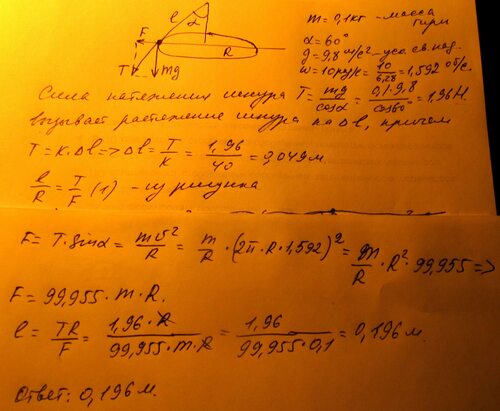 m = 0,1 кг - масса гири
F l α R
T mg
α = 60°
g = 9,8 м/с² - уск. св. пад.
ω = 10 рад/с = 10/6,28 = 1,592 об/с.
Сила натяжения шнура T = mg/cosα = 0,1·9,8/cos60° = 1,96 Н.
вызывает растяжение шнура на Δl, причем
T = k·Δl => Δl = T/k = 1,96/40 = 0,049 м.
l/R = T/F (1) - из рисунка
F = T·sinα = mv²/R = m/R · (2π·R·1,592)² = m/R · R²·99,955 =>
F = 99,955·m·R.
l = TR/F = 1,96·R/99,955·m·R = 1,96/99,955·0,1 = 0,196 м.
Ответ: 0,196 м.